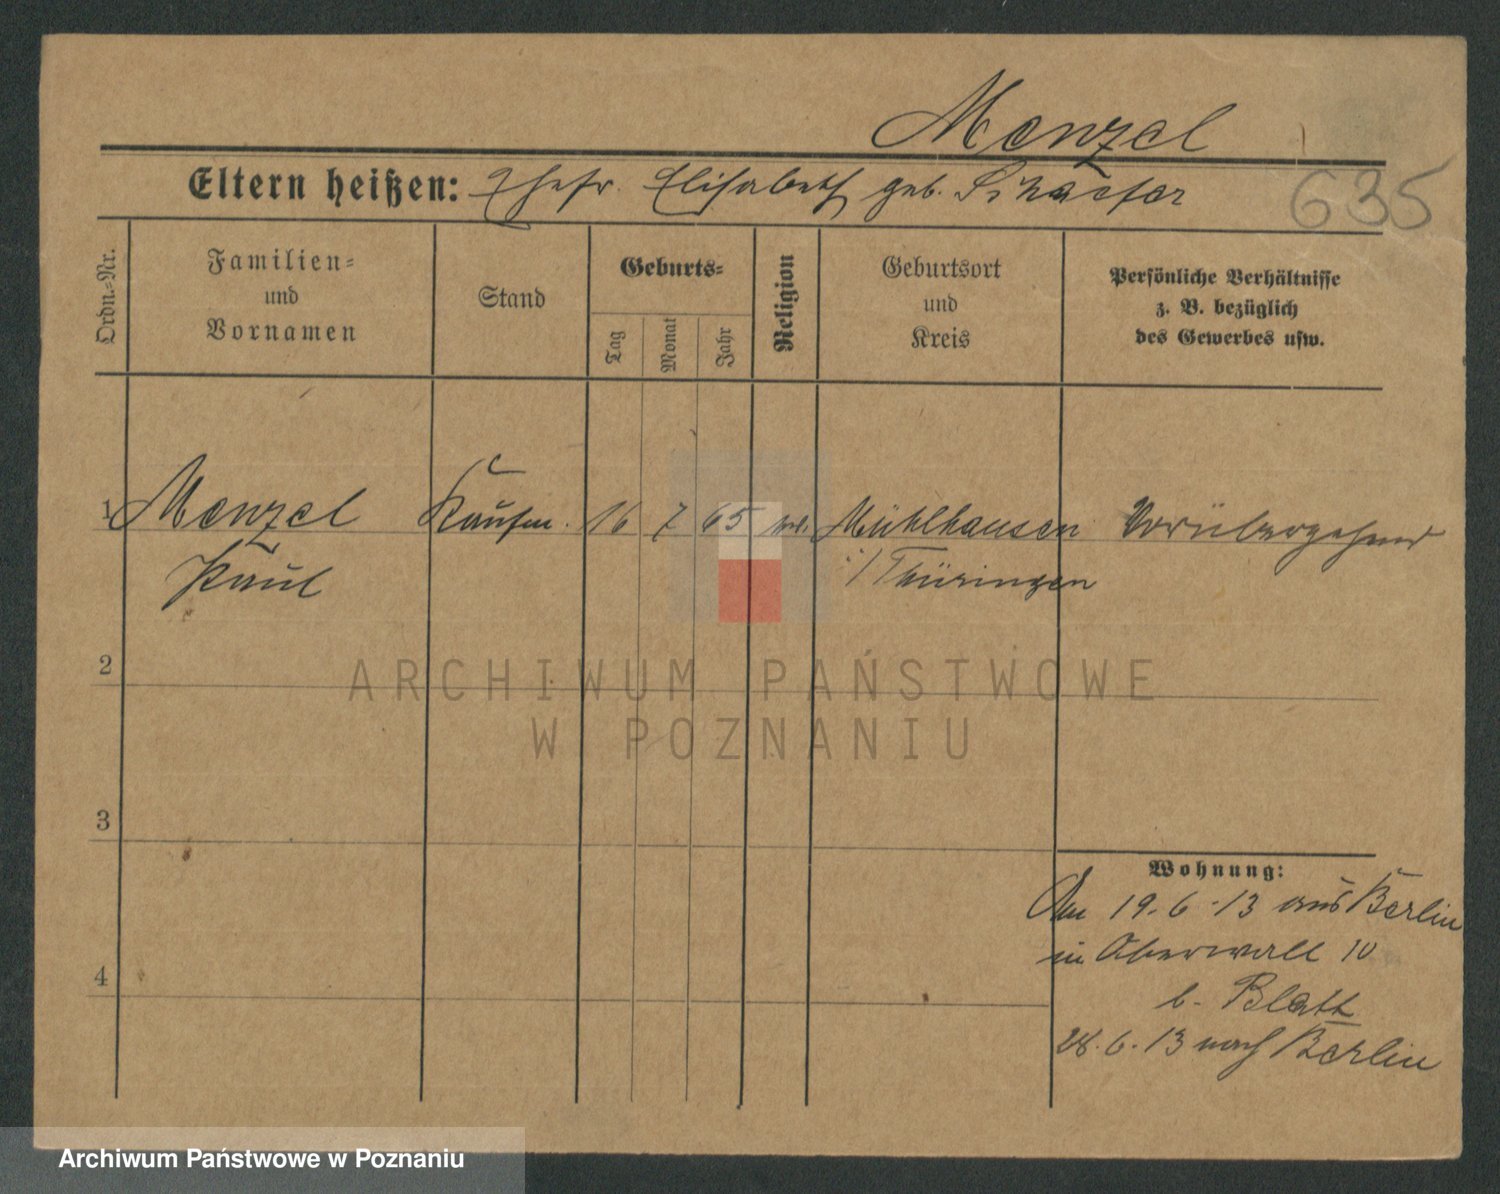 Menzel
635
Eltern heißen: Ehefr. Elisabeth geb. Schaefer
Ordn.-Nr.
Familien-
und
Vornamen
Stand
Geburts-
Tag
Monat
Jahr
Religion
Geburtsort
und
Kreis
Persönliche Verhältnisse
z. B. bezüglich
des Gewerbes usw.
1 Menzel Kaufm. 16 7 65 Mühlhausen Vorübergehend
Paul i/Thüringen
2
ARCHIWUM PAŃSTWOWE
W POZNANIU
3
Wohnung:
Am 19.6.13 aus Berlin
in Oberwall 10
4
b. Blatt
28.6.13 nach Berlin
Archiwum Państwowe w Poznaniu